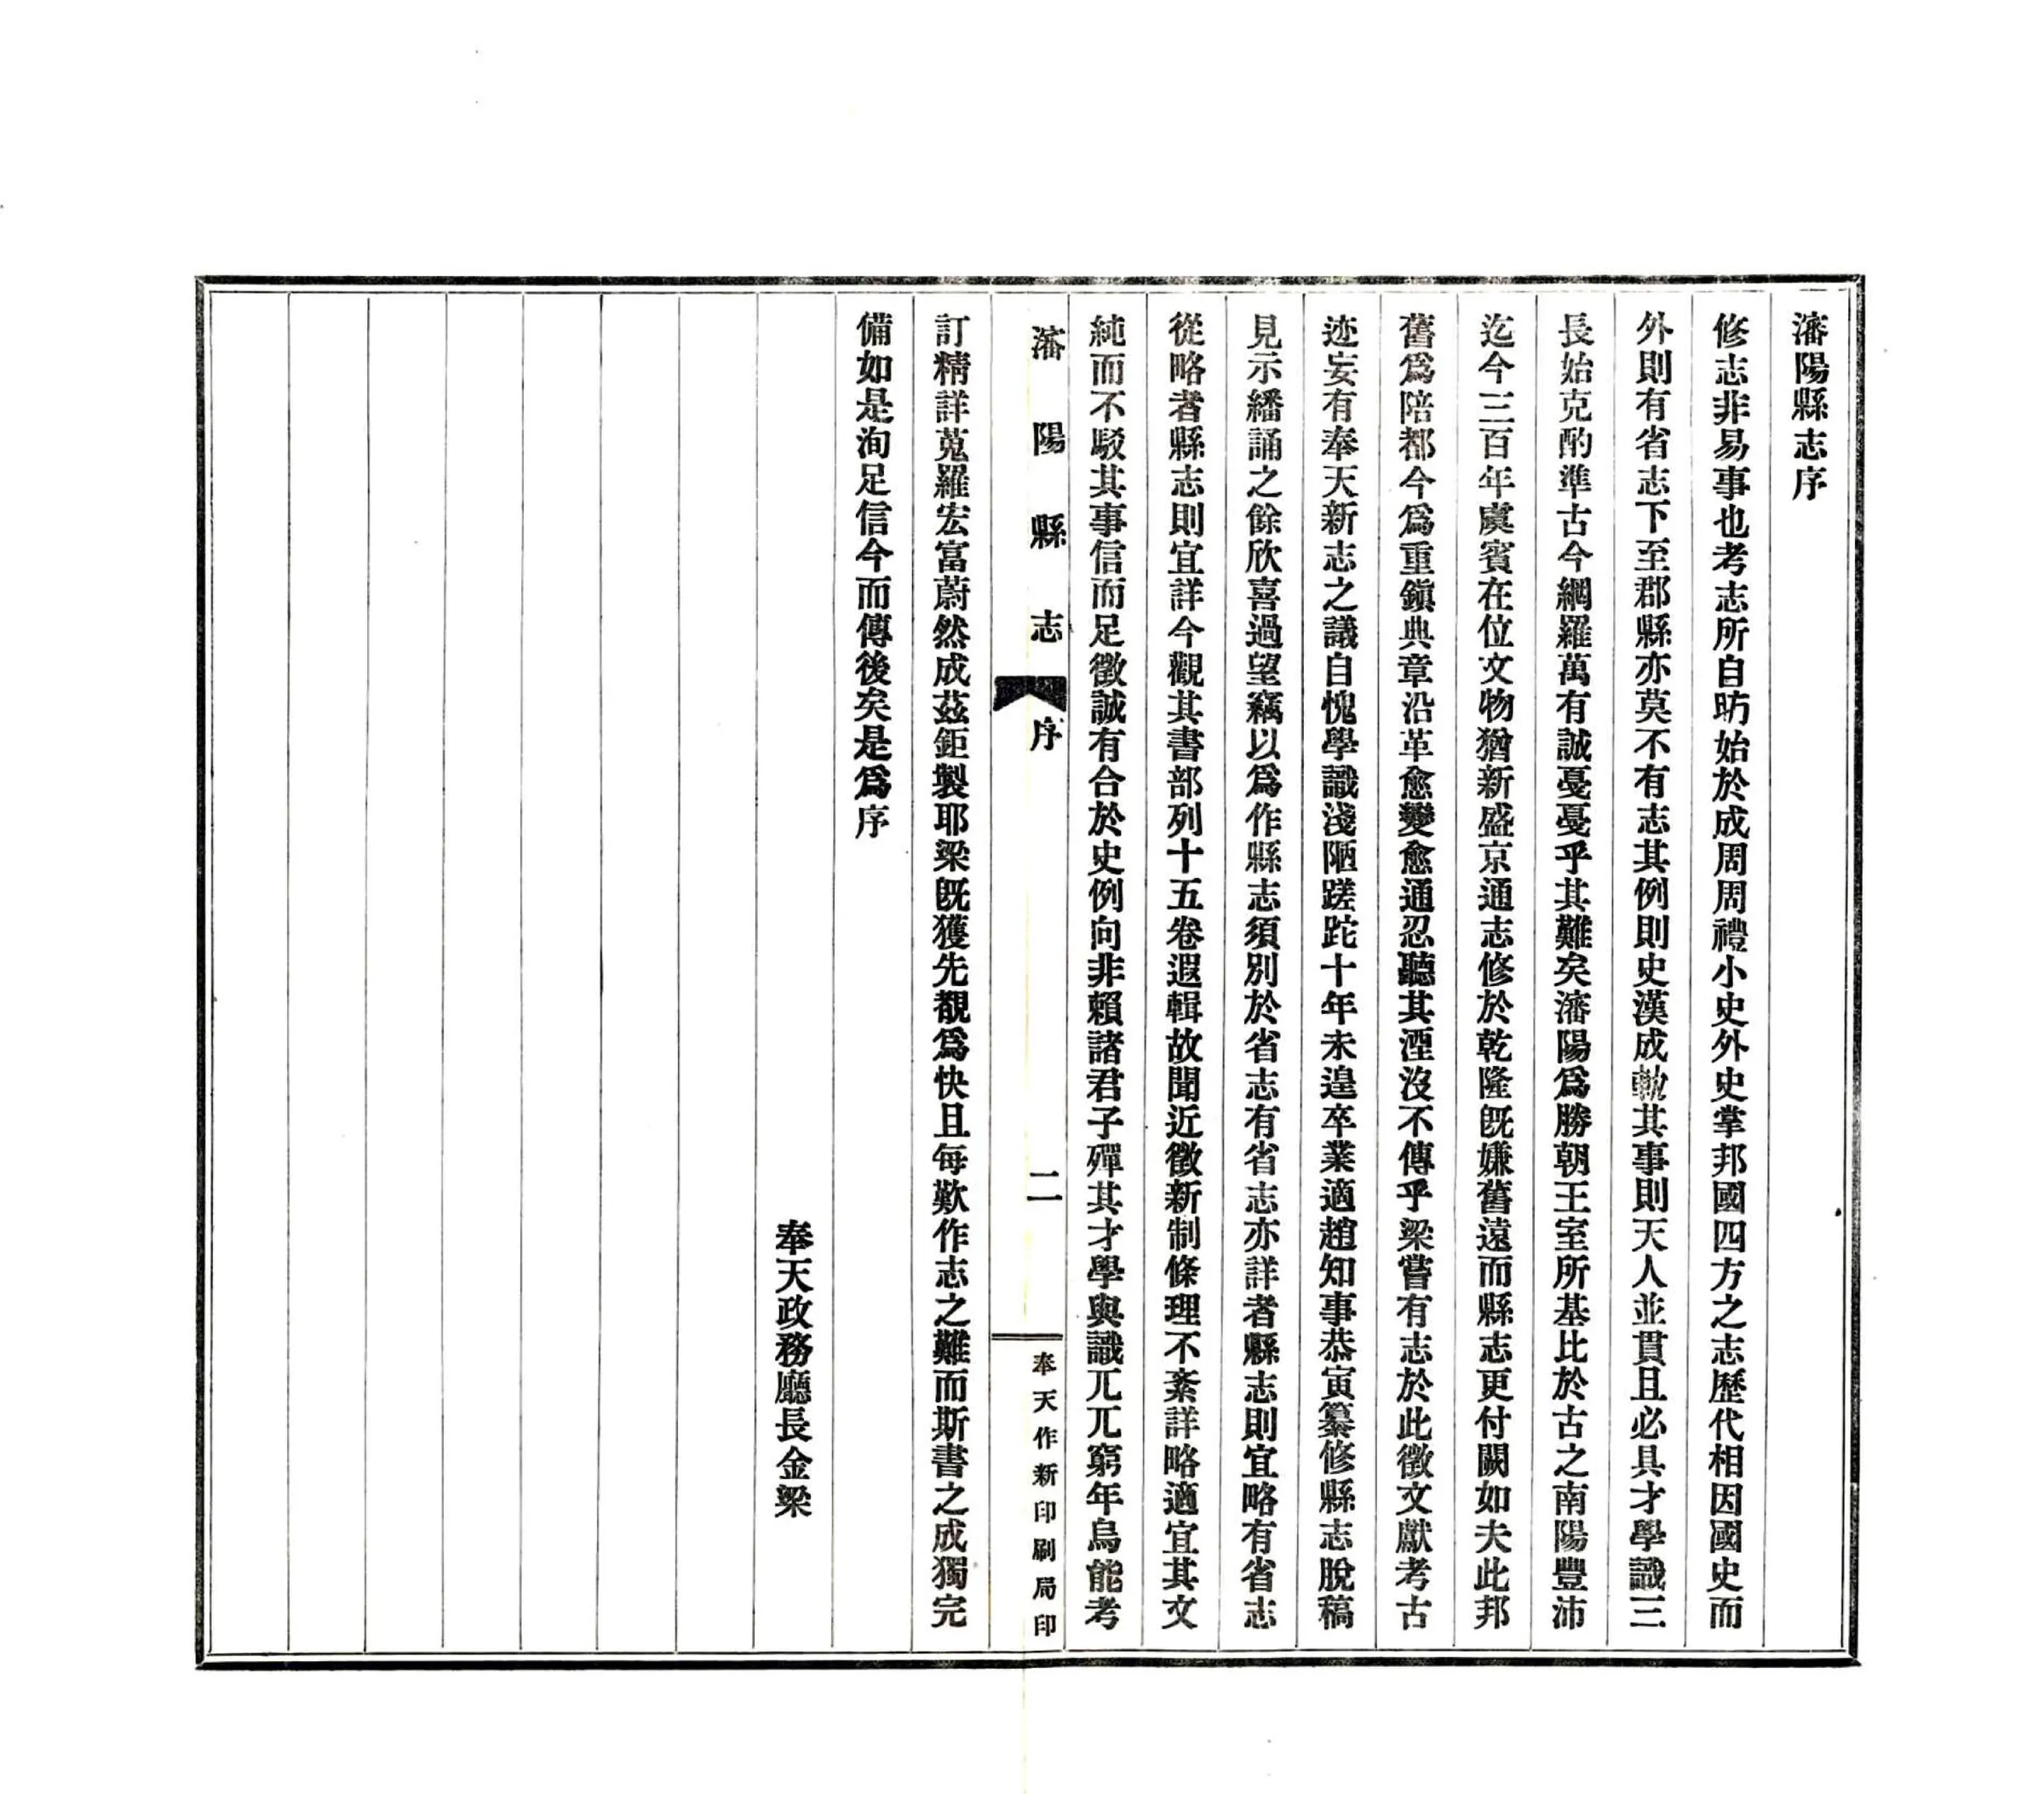 瀋陽縣志序
修志非易事也考志所自昉始於成周周禮小史外史掌邦國四方之志歷代相因國史而
外則有省志下至郡縣亦莫不有志其例則史漢成軌其事則天人並貫且必具才學識三
長始克酌準古今網羅萬有誠戞戞乎其難矣瀋陽爲勝朝王室所基比於古之南陽豐沛
迄今三百年虞賓在位文物猶新盛京通志修於乾隆既嫌舊遠而縣志更付闕如夫此邦
舊爲陪都今爲重鎭典章沿革愈變愈通忍聽其湮沒不傳乎梁嘗有志於此徵文獻考古
迹妄有奉天新志之議自愧學識淺陋蹉跎十年未遑卒業適趙知事恭寅纂修縣志脫稿
見示繙誦之餘欣喜過望竊以爲作縣志須別於省志有省志亦詳者縣志則宜略有省志
從略者縣志則宜詳今觀其書部列十五卷遐輯故聞近徵新制條理不紊詳略適宜其文
純而不駁其事信而足徵誠有合於史例向非賴諸君子殫其才學與識兀兀窮年烏能考
瀋陽縣志 序 二 奉天作新印刷局印
訂精詳蒐羅宏富蔚然成茲鉅製耶梁既獲先覩爲快且每歎作志之難而斯書之成獨完
備如是洵足信今而傳後矣是爲序
奉天政務廳長金梁